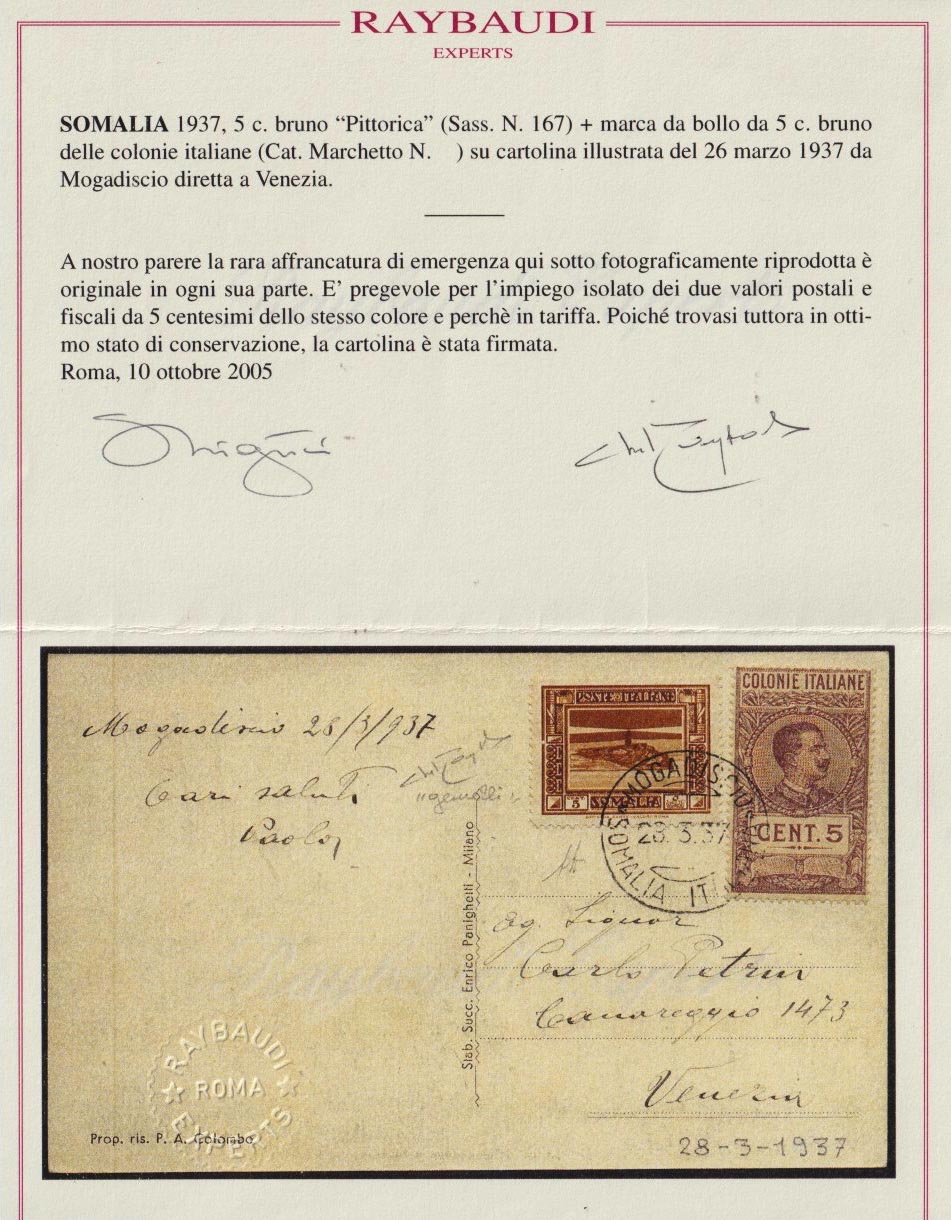 RAYBAUDI
EXPERTS
SOMALIA 1937, 5 c. bruno “Pittorica” (Sass. N. 167) + marca da bollo da 5 c. bruno
delle colonie italiane (Cat. Marchetto N. ) su cartolina illustrata del 26 marzo 1937 da
Mogadiscio diretta a Venezia.
A nostro parere la rara affrancatura di emergenza qui sotto fotograficamente riprodotta è
originale in ogni sua parte. E’ pregevole per l’impiego isolato dei due valori postali e
fiscali da 5 centesimi dello stesso colore e perchè in tariffa. Poiché trovasi tuttora in otti-
mo stato di conservazione, la cartolina è stata firmata.
Roma, 10 ottobre 2005
Mogadiscio 28/3/937
Cari saluti
Paolo
POSTE ITALIANE
5
SOMALIA
COLONIE ITALIANE
CENT. 5
MOGADISCIO
28.3.37
SOMALIA IT
Stab. Succ. Enrico Panighetti - Milano
Carlo Petrin
Canareggio 1473
Venezia
28-3-1937
Prop. ris. P. A. Colombo
RAYBAUDI
ROMA
EXPERTS